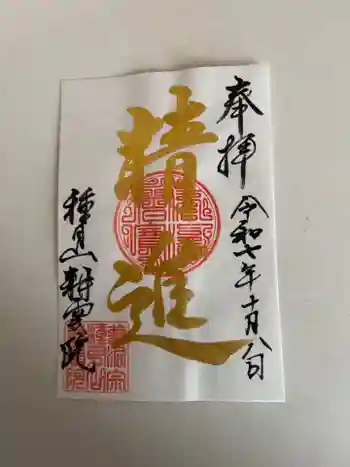 奉拝
令和七年十月八日
精進
種月山耕雲院